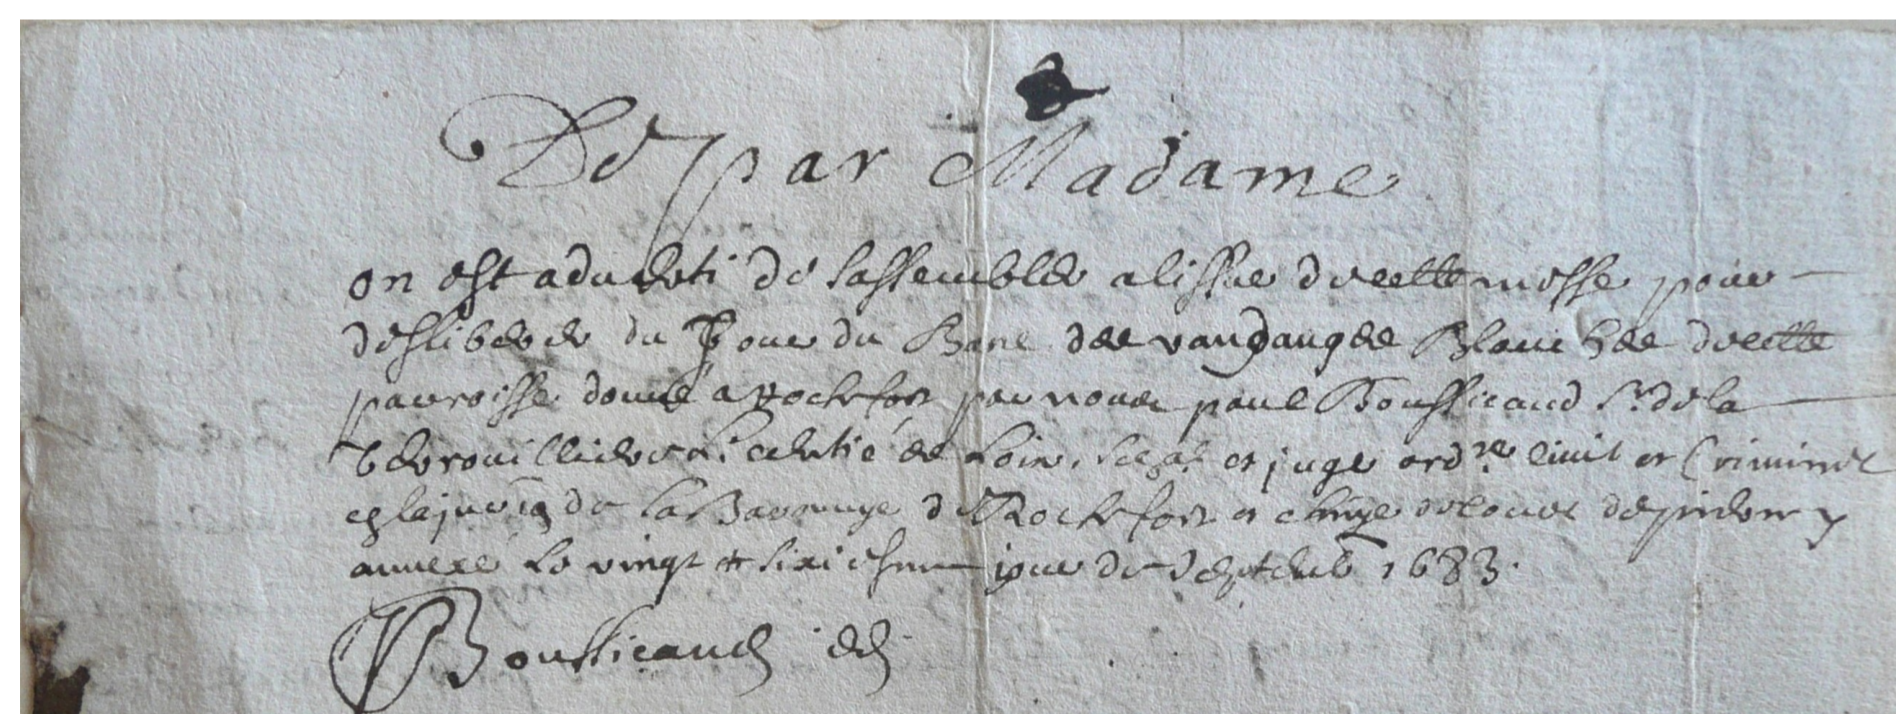 De par Madame
on est adverti de lassemblee a lissue de cette messe pour
desliberer du Jour du Banc des vandanges Blanches de cette
parroisse donné a Rochefort par nous paul Boussicaud Sr de la
licentié es Loix, et juge ordre civil et Criminel
de La Baronnye de Rochefort et
annexe Le vingt et sixiesme jour de Septembre 1683.
Boussicaud